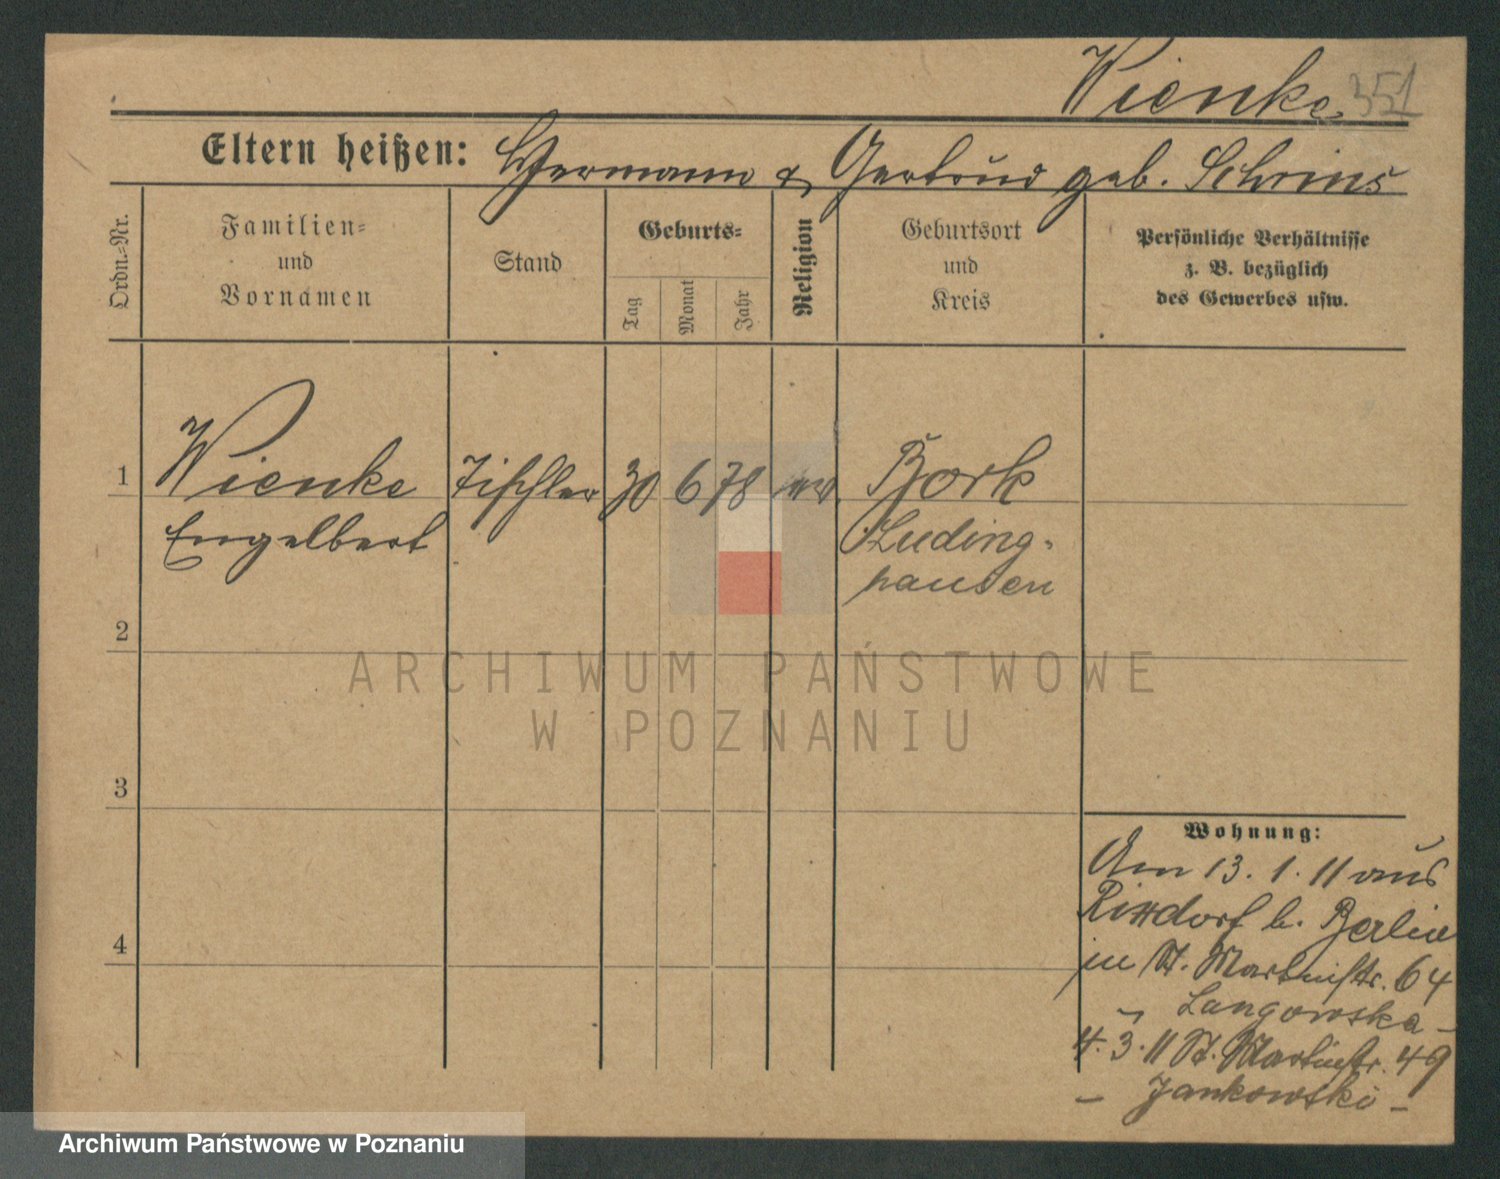 Wienke 351
Eltern heißen: Hermann & Gertrud geb. Schrins
Ordn.-Nr.
Familien-
und
Vornamen
Stand
Geburts-
Tag
Monat
Jahr
Religion
Geburtsort
und
Kreis
Persönliche Verhältnisse
z. B. bezüglich
des Gewerbes usw.
1 Wienke Tischler 30 6 78 Bork
Engelbert Luding-
hausen
2
3
4
Wohnung:
Am 13.1.11 aus
Rixdorf b. Berlin
in St. Martinstr. 64
- Langowska -
4.3.11 St. Martinstr. 49
- Jankowski -
ARCHIWUM PAŃSTWOWE
W POZNANIU
Archiwum Państwowe w Poznaniu